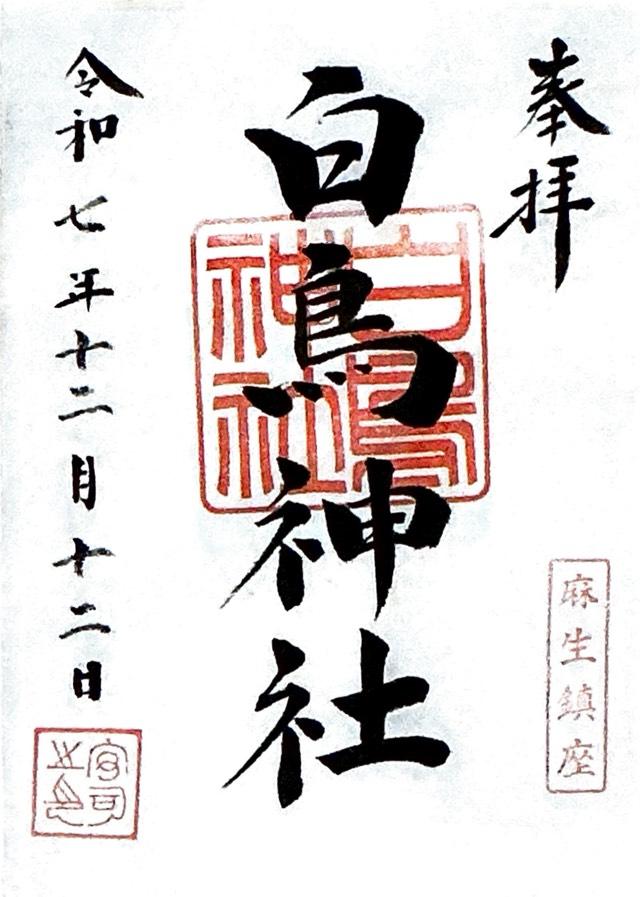 奉拝
麻生鎮座
白鳥神社
白鳥
神社
令和七年十二月十二日
宮司
之印